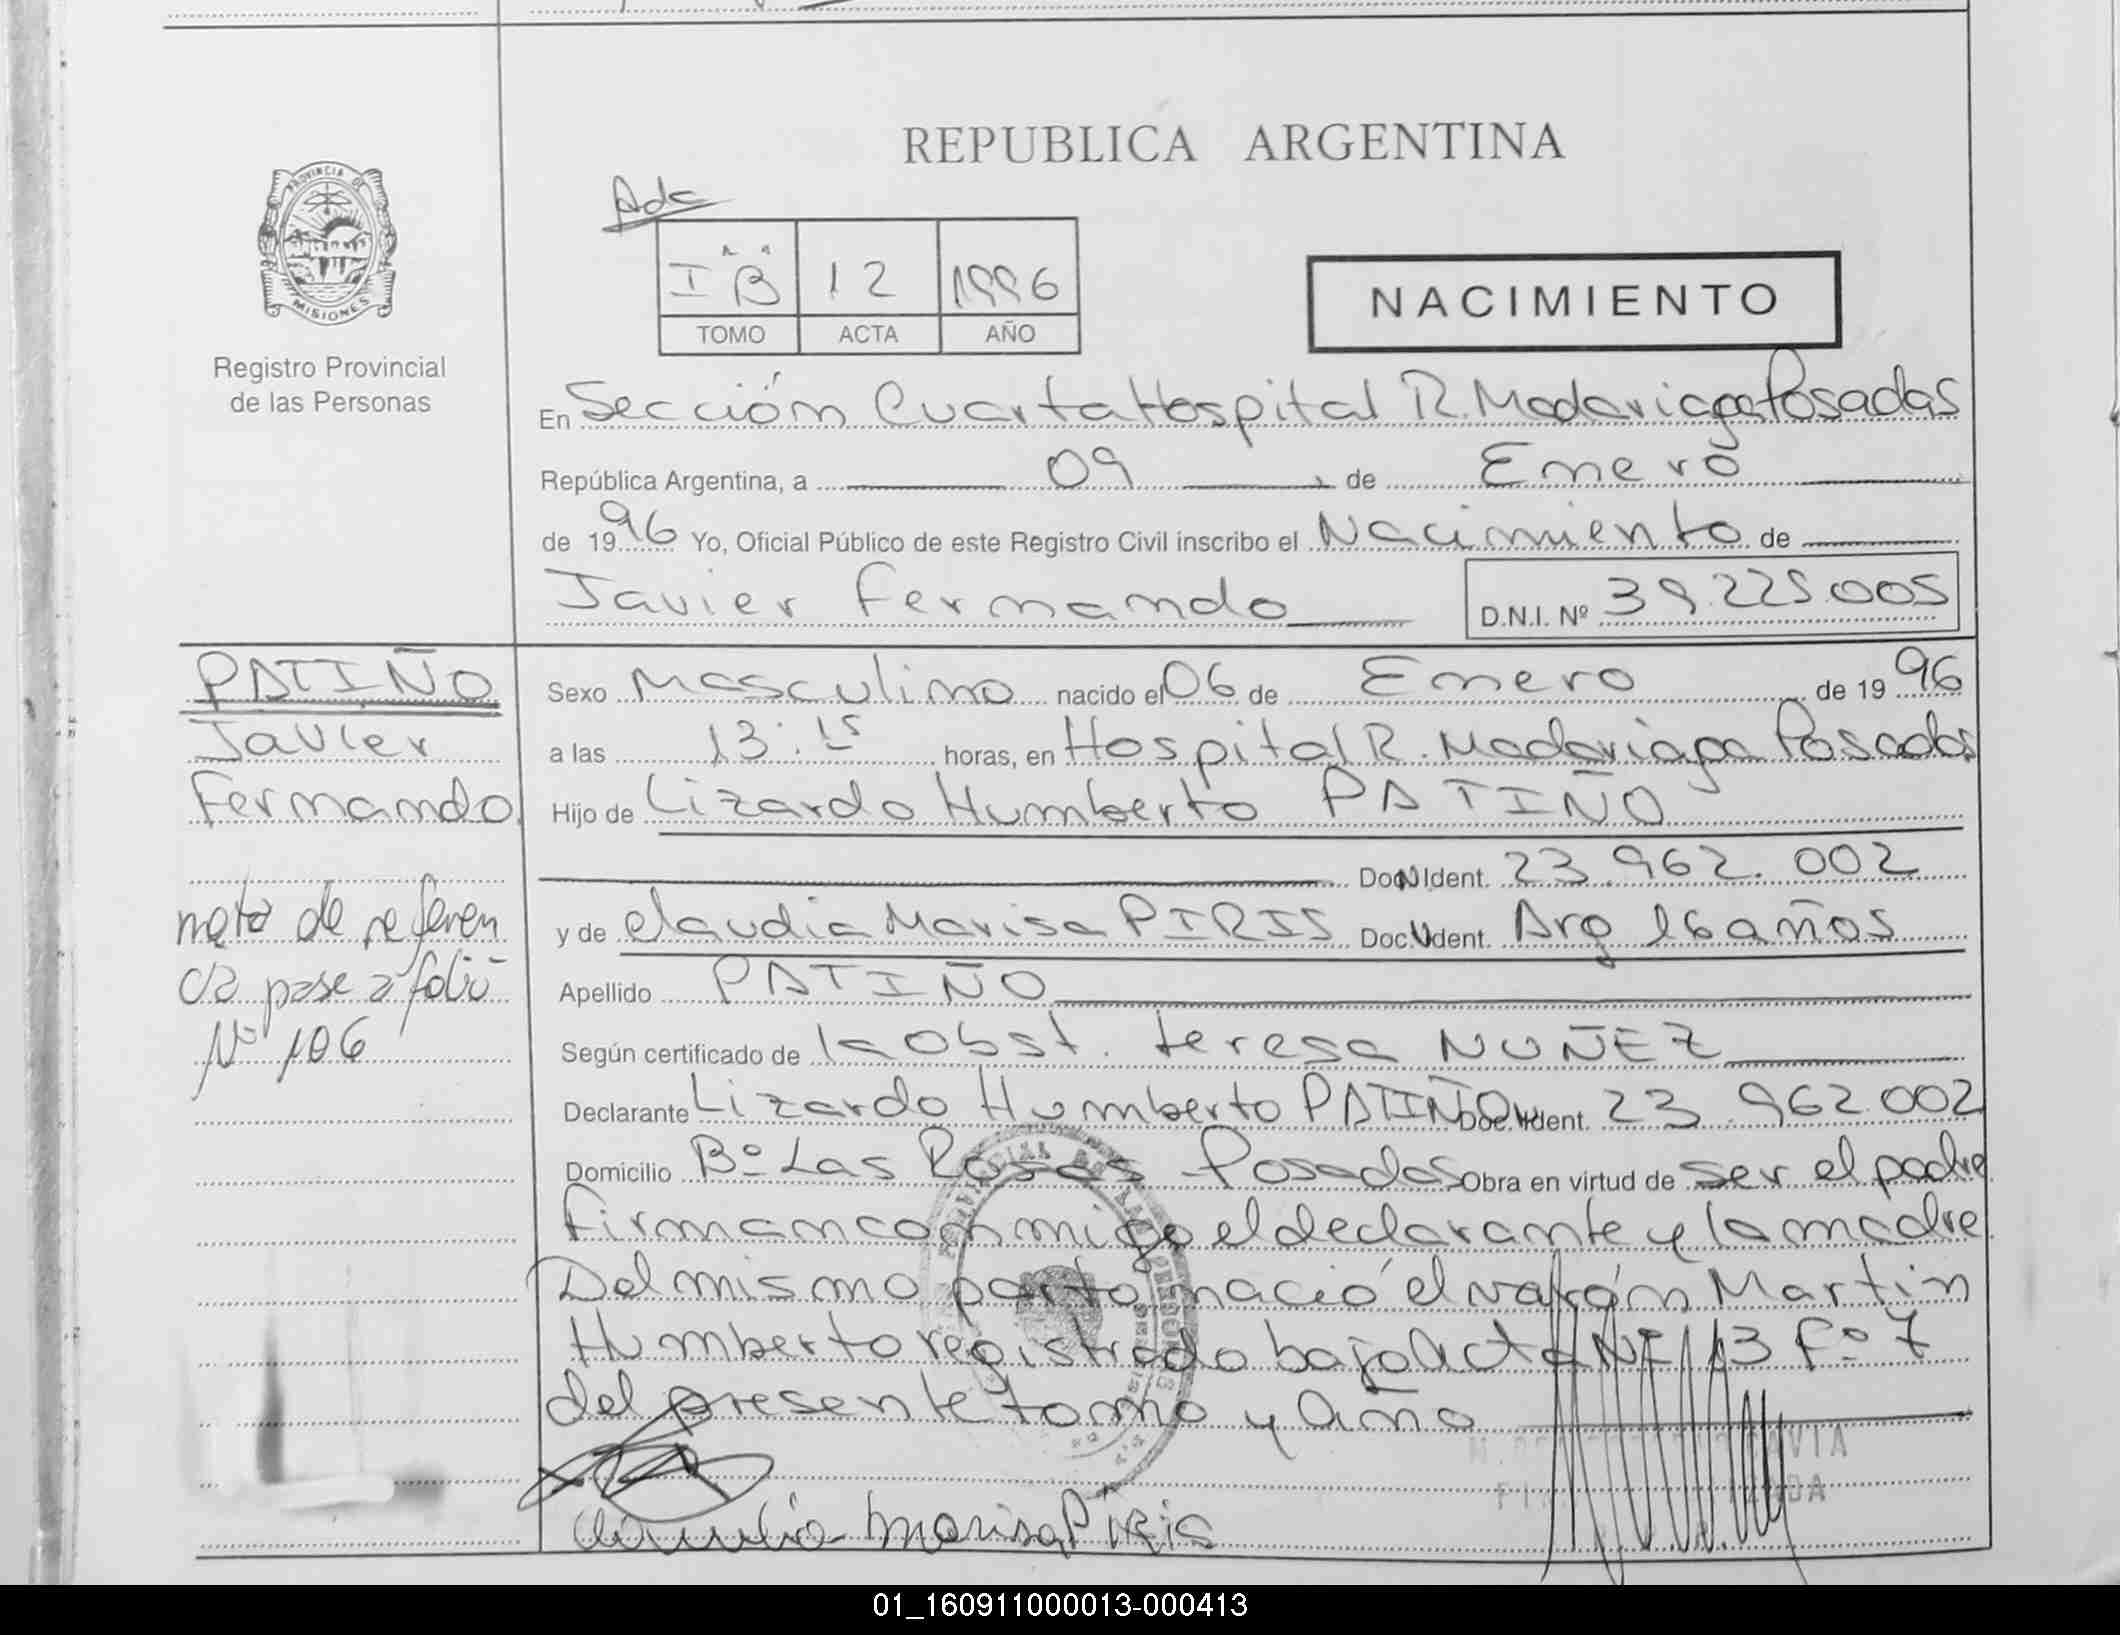 REPUBLICA ARGENTINA
Adc
I "B" 12 1996
TOMO ACTA AÑO
NACIMIENTO
PROVINCIA DE
MISIONES
Registro Provincial
de las Personas
En Sección Cuarta Hospital R. Madariaga Posadas
República Argentina, a 09 de Enero
de 1996 Yo, Oficial Público de este Registro Civil inscribo el Nacimiento de
Javier Fernando D.N.I. Nº 39.225.005
PATIÑO
Javier
Fernando
nota de referen
cia pase a folio
Nº 106
Sexo Masculino nacido el 06 de Enero de 1996
a las 13:15 horas, en Hospital R. Madariaga Posadas
Hijo de Lizardo Humberto PATIÑO
Doc. Ident. 23.962.002
y de Claudia Marisa PIRIS Doc. Ident. Arg 16 años
Apellido PATIÑO
Según certificado de la Obst. teresa NUÑEZ
Declarante Lizardo Humberto PATIÑO Doc. Ident. 23.962.002
Domicilio Bº Las Rosas Posadas Obra en virtud de ser el padre
Firman conmigo el declarante y la madre
Del mismo parto nació el varón Martin
Humberto registrado bajo Acta Nº 13 Fº 7
del presente tomo y Año
Claudia Marisa Piris
01_160911000013-000413